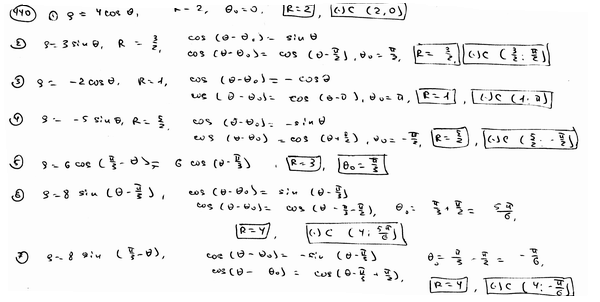 940 ① ρ = 4cosθ, r = 2, θ₀ = 0. R=2, (·)C (2,0)
② ρ = 3 sinθ, R = 3/2, cos(θ-θ₀) = sinθ
cos(θ-θ₀) = cos(θ-π/2), θ₀ = π/2, R = 3/2, (·)C (3/2; π/2)
③ ρ = -2cosθ, R=1, cos(θ-θ₀) = -cosθ
cos(θ-θ₀) = cos(θ-π), θ₀ = π, R=1, (·)C (1; π)
④ ρ = -5 sinθ, R = 5/2, cos(θ-θ₀) = -sinθ
cos(θ-θ₀) = cos(θ+π/2), θ₀ = -π/2, R = 5/2, (·)C (5/2; -π/2)
⑤ ρ = 6 cos(π/3-θ) = 6 cos(θ-π/3). R=3, θ₀ = π/3
⑥ ρ = 8 sin(θ-π/3), cos(θ-θ₀) = sin(θ-π/3)
cos(θ-θ₀) = cos(θ-π/3-π/2), θ₀ = π/3+π/2 = 5π/6,
R=4, (·)C (4; 5π/6)
⑦ ρ = 8 sin(π/3-θ), cos(θ-θ₀) = -sin(θ-π/3) θ₀ = π/3-π/2 = -π/6,
cos(θ-θ₀) = cos(θ-π/3+π/2), R=4, (·)C (4; -π/6)